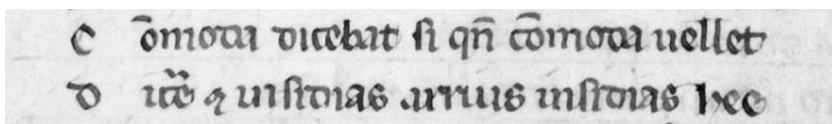 C om̄oda dicebat si qn̄ com̄oda uellet
D ic̄e ⁊ insidias arrius insidias hee